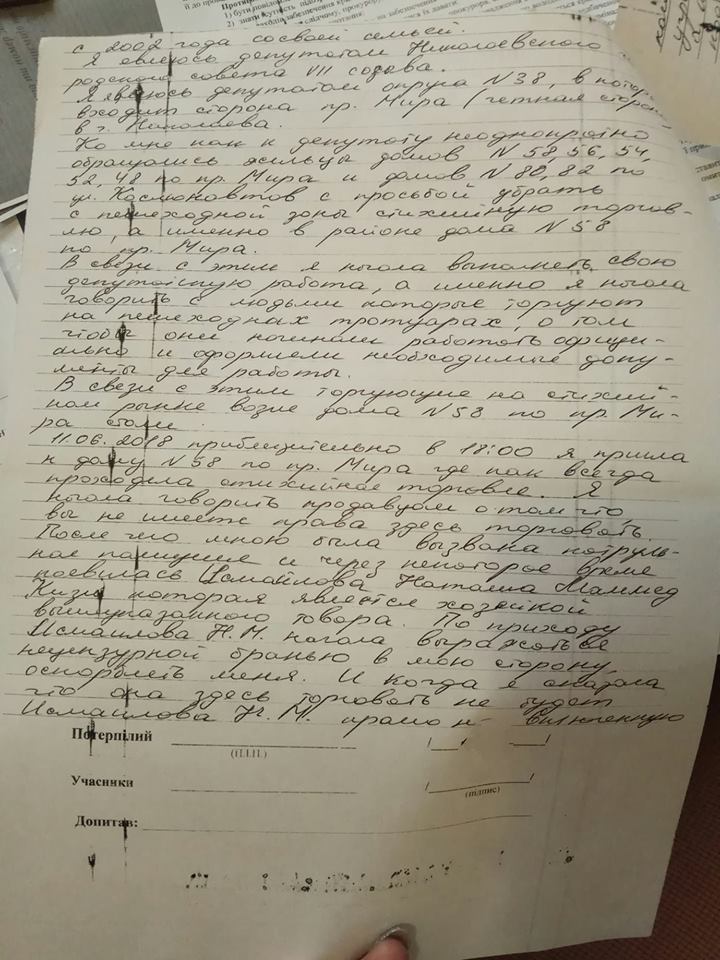 с 2002 года со своей семьей.
Я являюсь депутатом Николаевского
родского совета VII созыва.
Я являюсь депутатом округа N38, в котор
входит сторона пр. Мира (четная сторо
в г. Николаева.
Ко мне как к депутату неоднократно
обращались жильцы домов N 58, 56, 54,
52, 48 по пр. Мира и домов N 80, 82 по
ул. Космонавтов с просьбой убрать
с пешеходной зоны стихийную торгов-
лю, а именно в районе дома N 58
по пр. Мира.
В связи с этим я начала выполнять свою
депутатскую работа, а именно я начала
говорить с людьми которые торгуют
на пешеходных тротуарах, о том
чтобы они начинали работать официи-
ально и оформили необходимые доку-
менты для работы.
В связи с этим торгующие на стихий-
ном рынке возле дома N 58 по пр. Ми-
ра стали
11.06.2018 приблизительно в 18:00 я пришла
к дому N 58 по пр. Мира где как всегда
проходила стихийная торговля. Я
начала говорить продавцам о том что
вы не имеете права здесь торговать.
После чего мною была вызвана патруль-
ная полиция и через некоторое время
появилась Исмайлова Наташа Маммед
Кизи которая является хозяйкой
вышеуказанного товара. По приходу
Исмаилова Н.М. начала выражаться
нецензурной бранью в мою сторону,
оскорблять меня. И когда я сказала
что она здесь торговать не будет
Исмаилова Н.М. включенную
Потерпілий
(П.І.П.)
Учасники
(підпис)
Допитав: